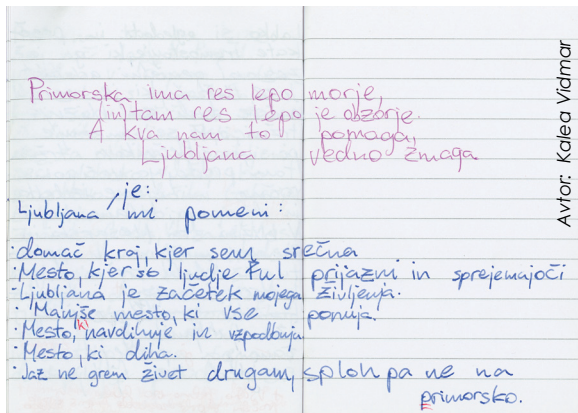 Primorska ima res lepo morje,
(in) tam res lepo je obzorje.
A kva nam to pomaga,
Ljubljana vedno zmaga.
Ljubljana / je:
mi pomeni:
· domač kraj, kjer sem srečna
· Mesto, kjer so ljudje ful prijazni in sprejemajoči
· Ljubljana je začetek mojega življenja.
· Manjše mesto, ki vse ponuja.
· Mesto, ki navdihuje in vzpodbuja
· Mesto, ki diha.
· Jaz ne grem živet drugam, sploh pa ne na
primorsko.
Avtor: Kalea Vidmar